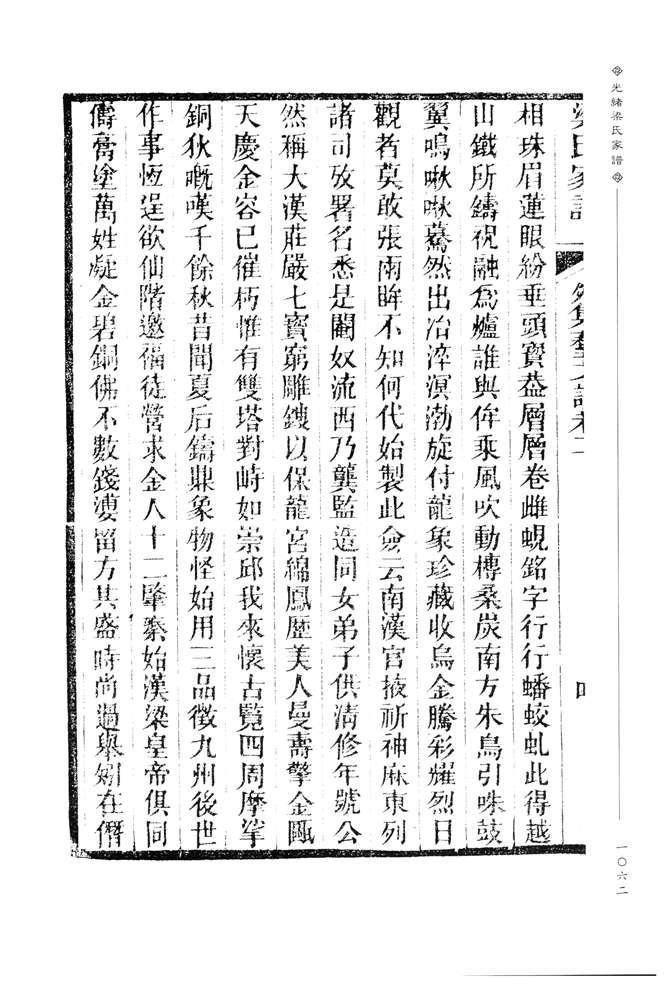 光緒梁氏家譜
一〇六二
梁氏家譜 卷二 四
相珠眉蓮眼紛垂頭寶葢層層卷雌蜺銘字行行蟠蛟虬此得越
山鐵所鑄祝融為爐誰與侔乘風吹動槫桑炭南方朱鳥引咮鼓
翼鳴啾啾驀然出冶淬溟渤旋付龍象珍藏收烏金騰彩耀烈日
觀者莫敢張兩眸不知何代始製此僉云南漢宮掖祈神庥東列
諸司攷署名悉是閹奴流西乃龔監造同女弟子供清修年號公
然稱大漢莊嚴七寶窮雕鎪以保龍宮綿鳳歷美人曼壽擎金甌
天慶金容已催朽惟有雙塔對峙如崇邱我來懷古覧四周摩挲
銅狄嘅嘆千餘秋昔聞夏后鑄鼎象物怪始用三品徵九州後世
作事恆逞欲仙階邀福徒營求金人十二肇秦始漢梁皇帝俱同
儔膏塗萬姓凝金碧銅佛不數錢鏤留方其盛時尚過舉矧在僭